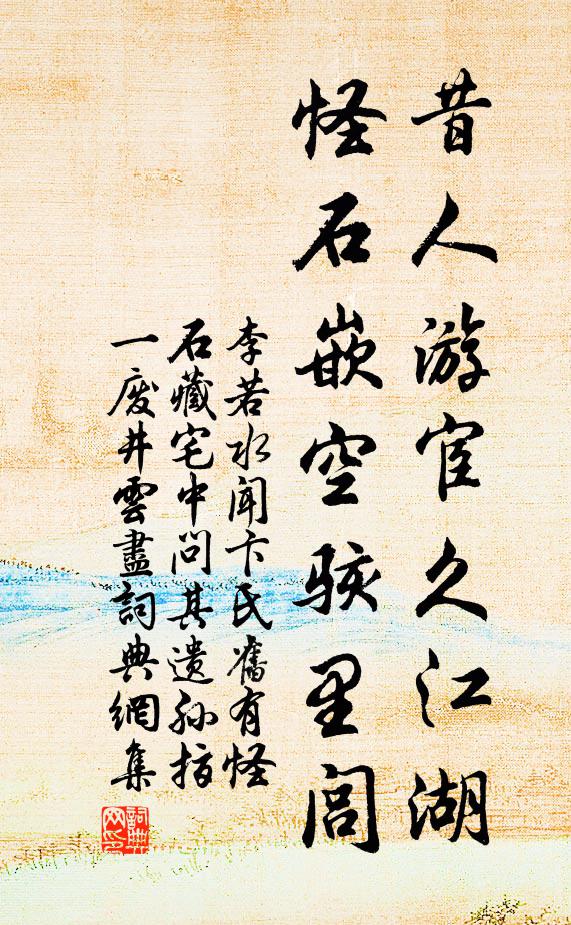 昔人游宦久江湖
怪石嵌空骇里闾
李若水闻卞氏旧有怪
石藏宅中问其遗孙指
一废井云尽词典网集
词典网印